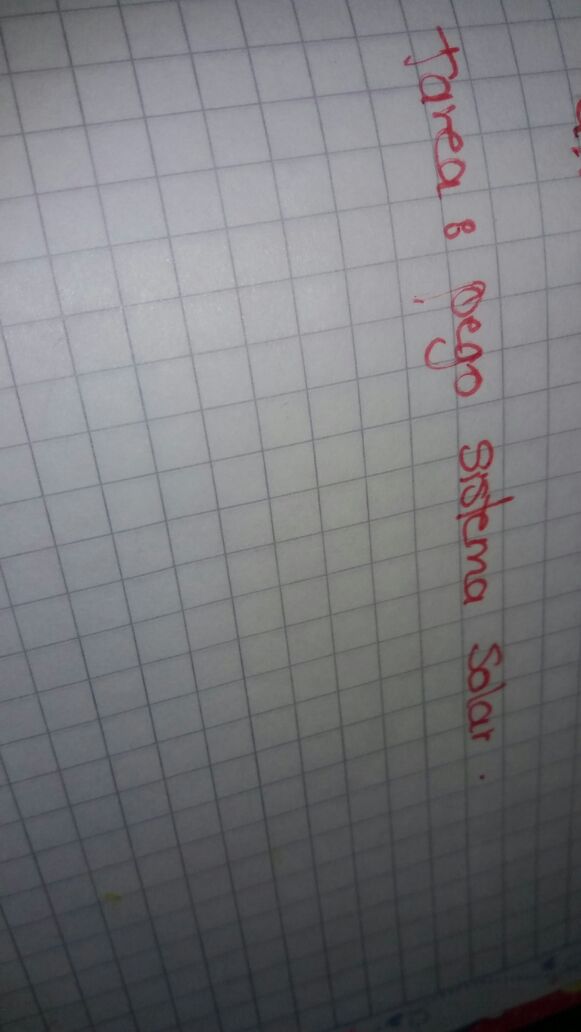 Tarea: pego sistema solar.